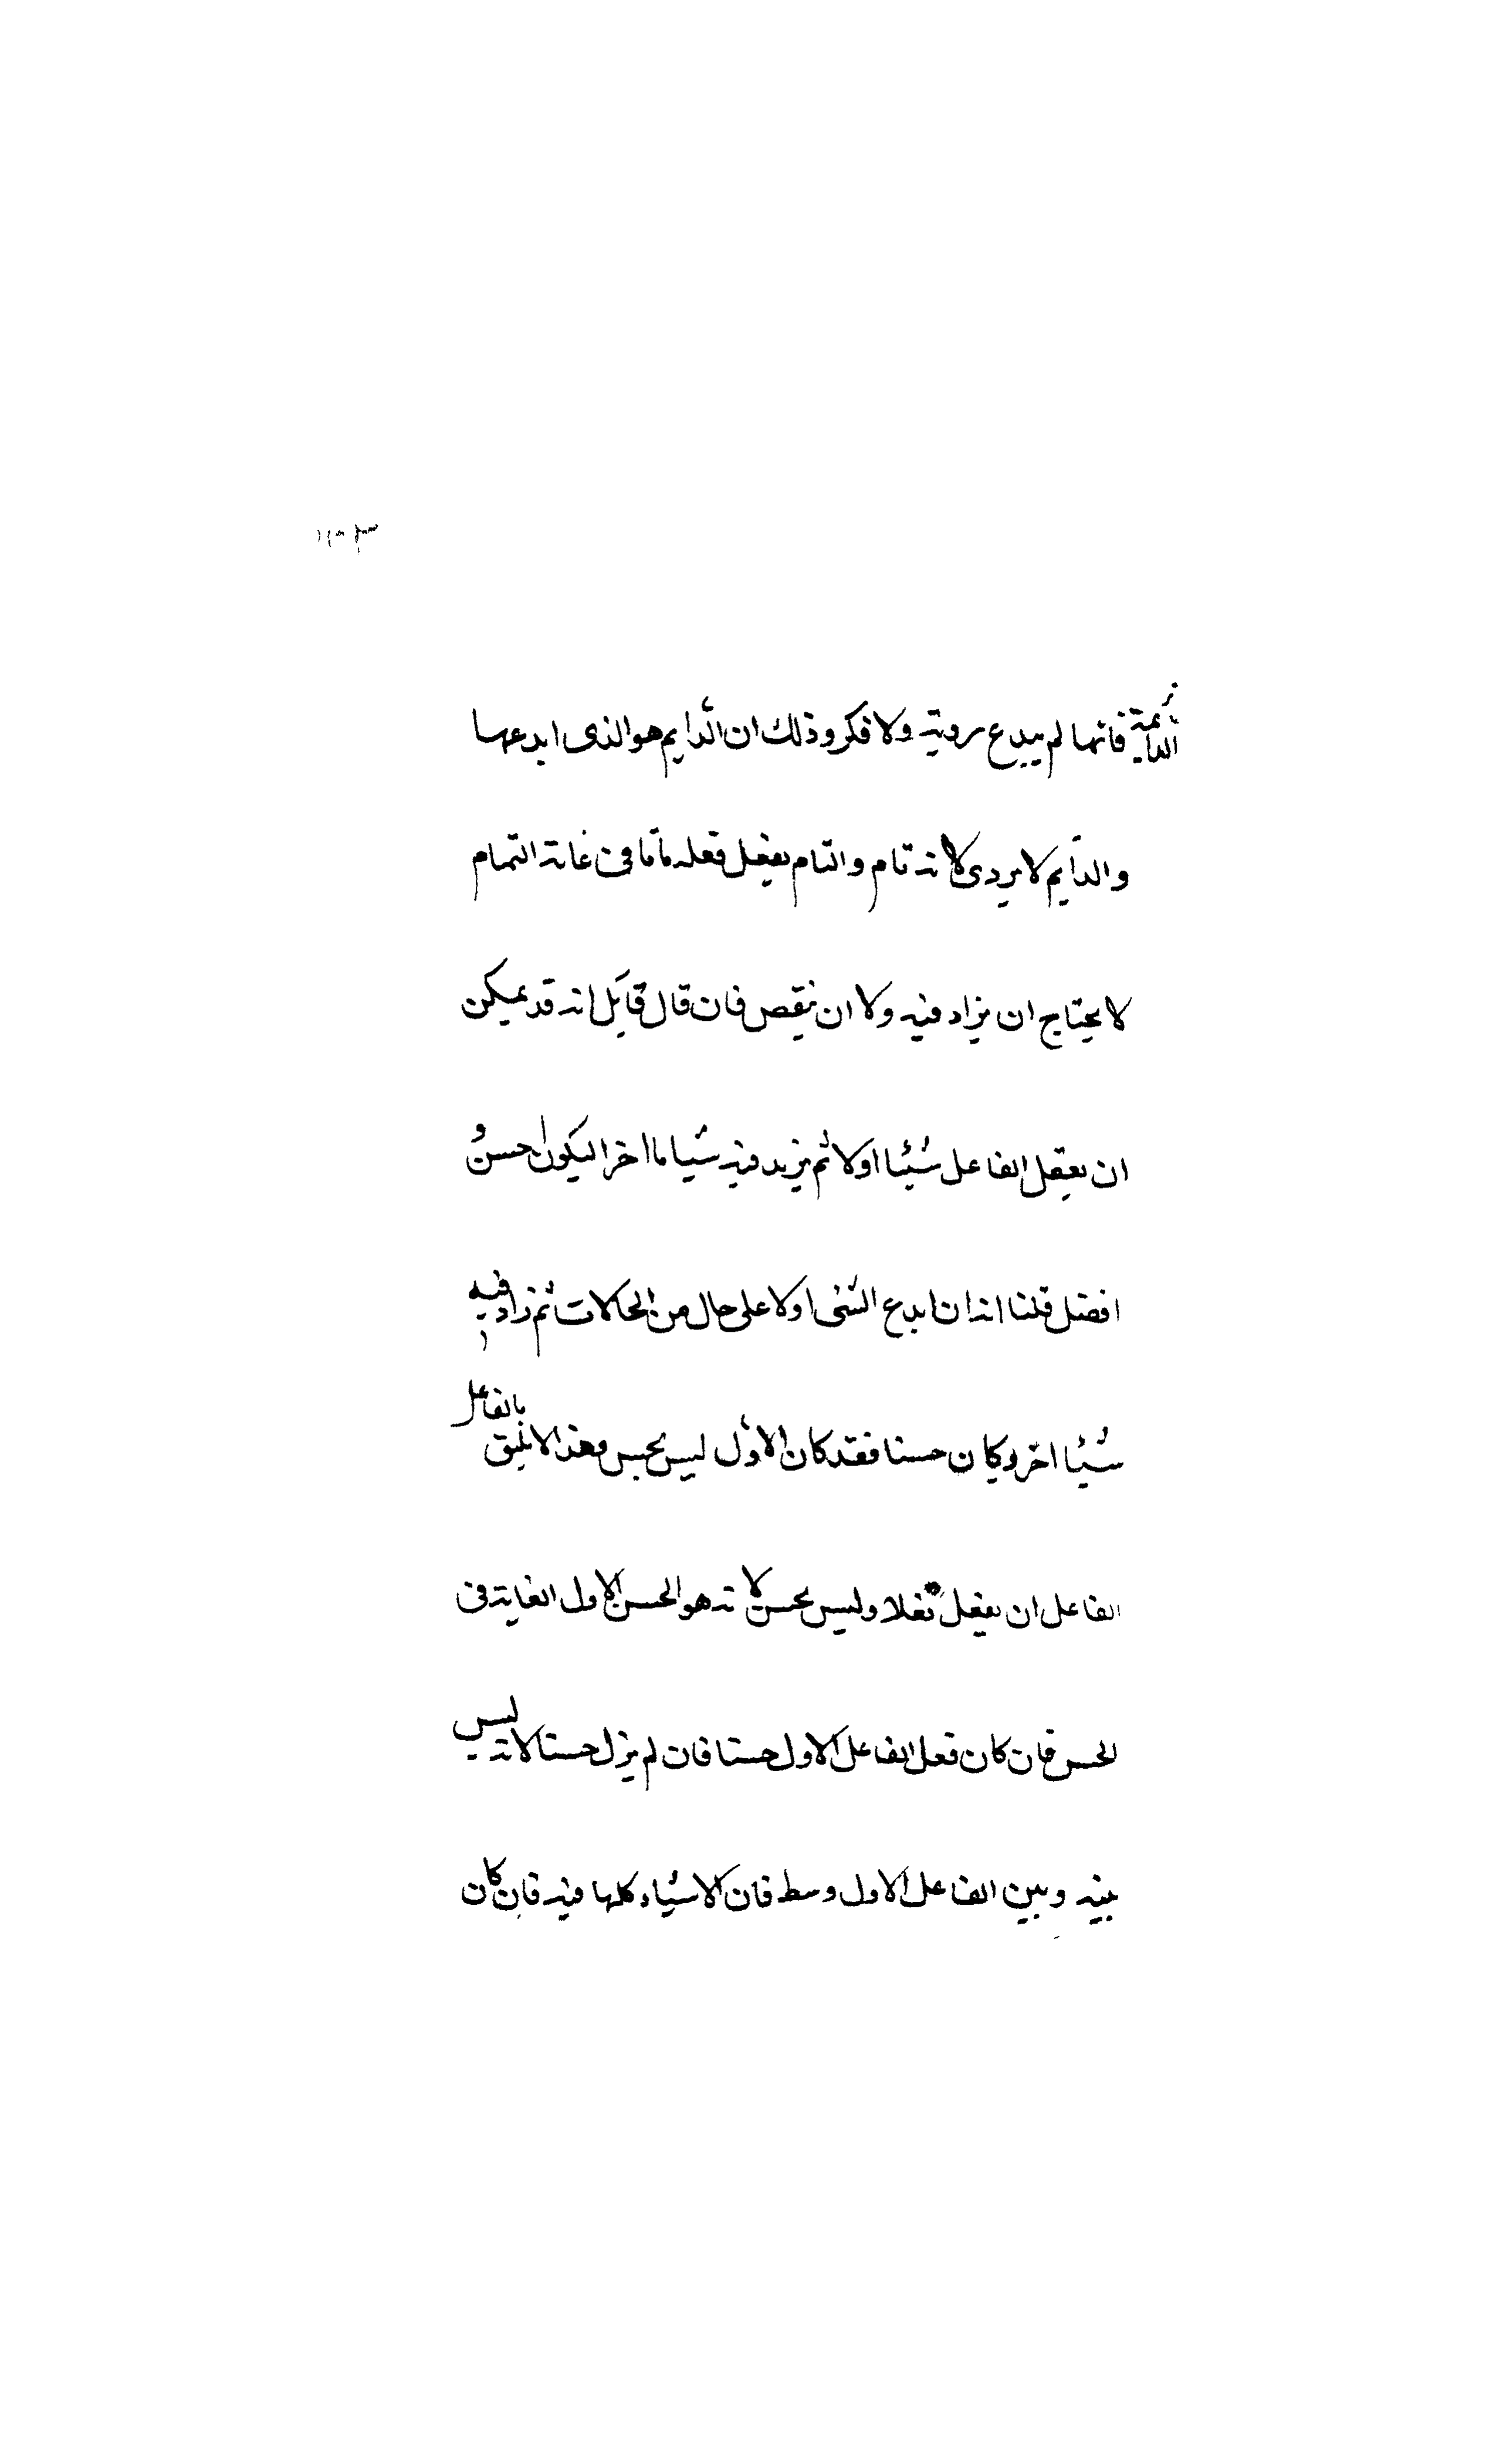 الدايمة فانها لم يبدع بروية ولا فكر وذلك ان الدايم هو الذى ابدعها
والدايم لا يردى لانه تام والتام يفعل فعله تاما فى غاية التمام
لا يحتاج ان يزاد فيه ولا ان ينقص فان قال قايل انه قد يمكن
ان يفعل الفاعل شيئا اولا ثم يزيد فيه شيا ما اخر ليكون احسن و
افضل قلنا انه ان ابدع الشئ اولا على حال من الحالات ثم زاد فيه
شيئا اخر وكان حسنا فقد كان الاول ليس بحسن وهذا لا يليق بالفاعل
الفاعل ان يفعل فعلا وليس بحسن لانه هو الحسن الاول الغاية فى
الحسن فان كان فعل الفاعل الاول حسنا فان لم يزل حسنا لانه ليس
بينه وبين الفاعل الاول وسط فان الاشياء كلها فيه فان كان